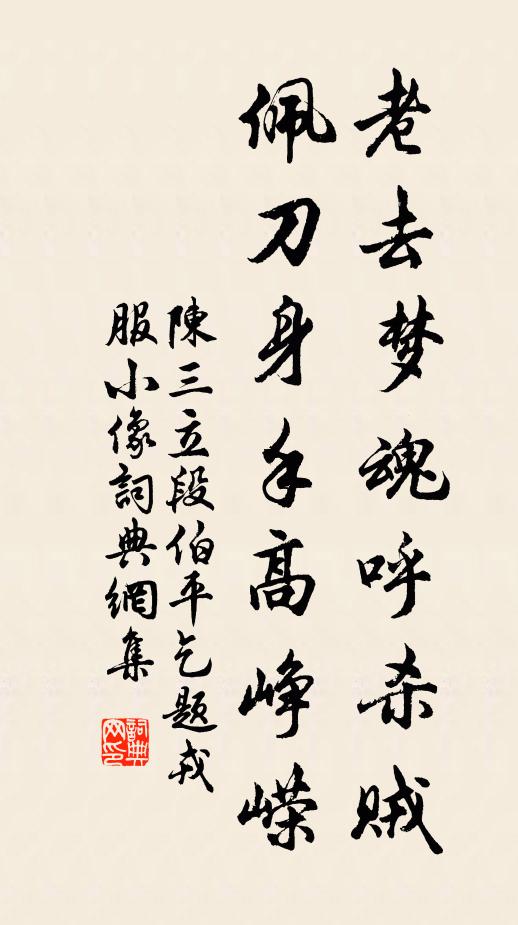 老去梦魂呼杀贼
佩刀身手高峥嵘
陳三立段伯平乞题戎
服小像詞典網集
詞典
网印